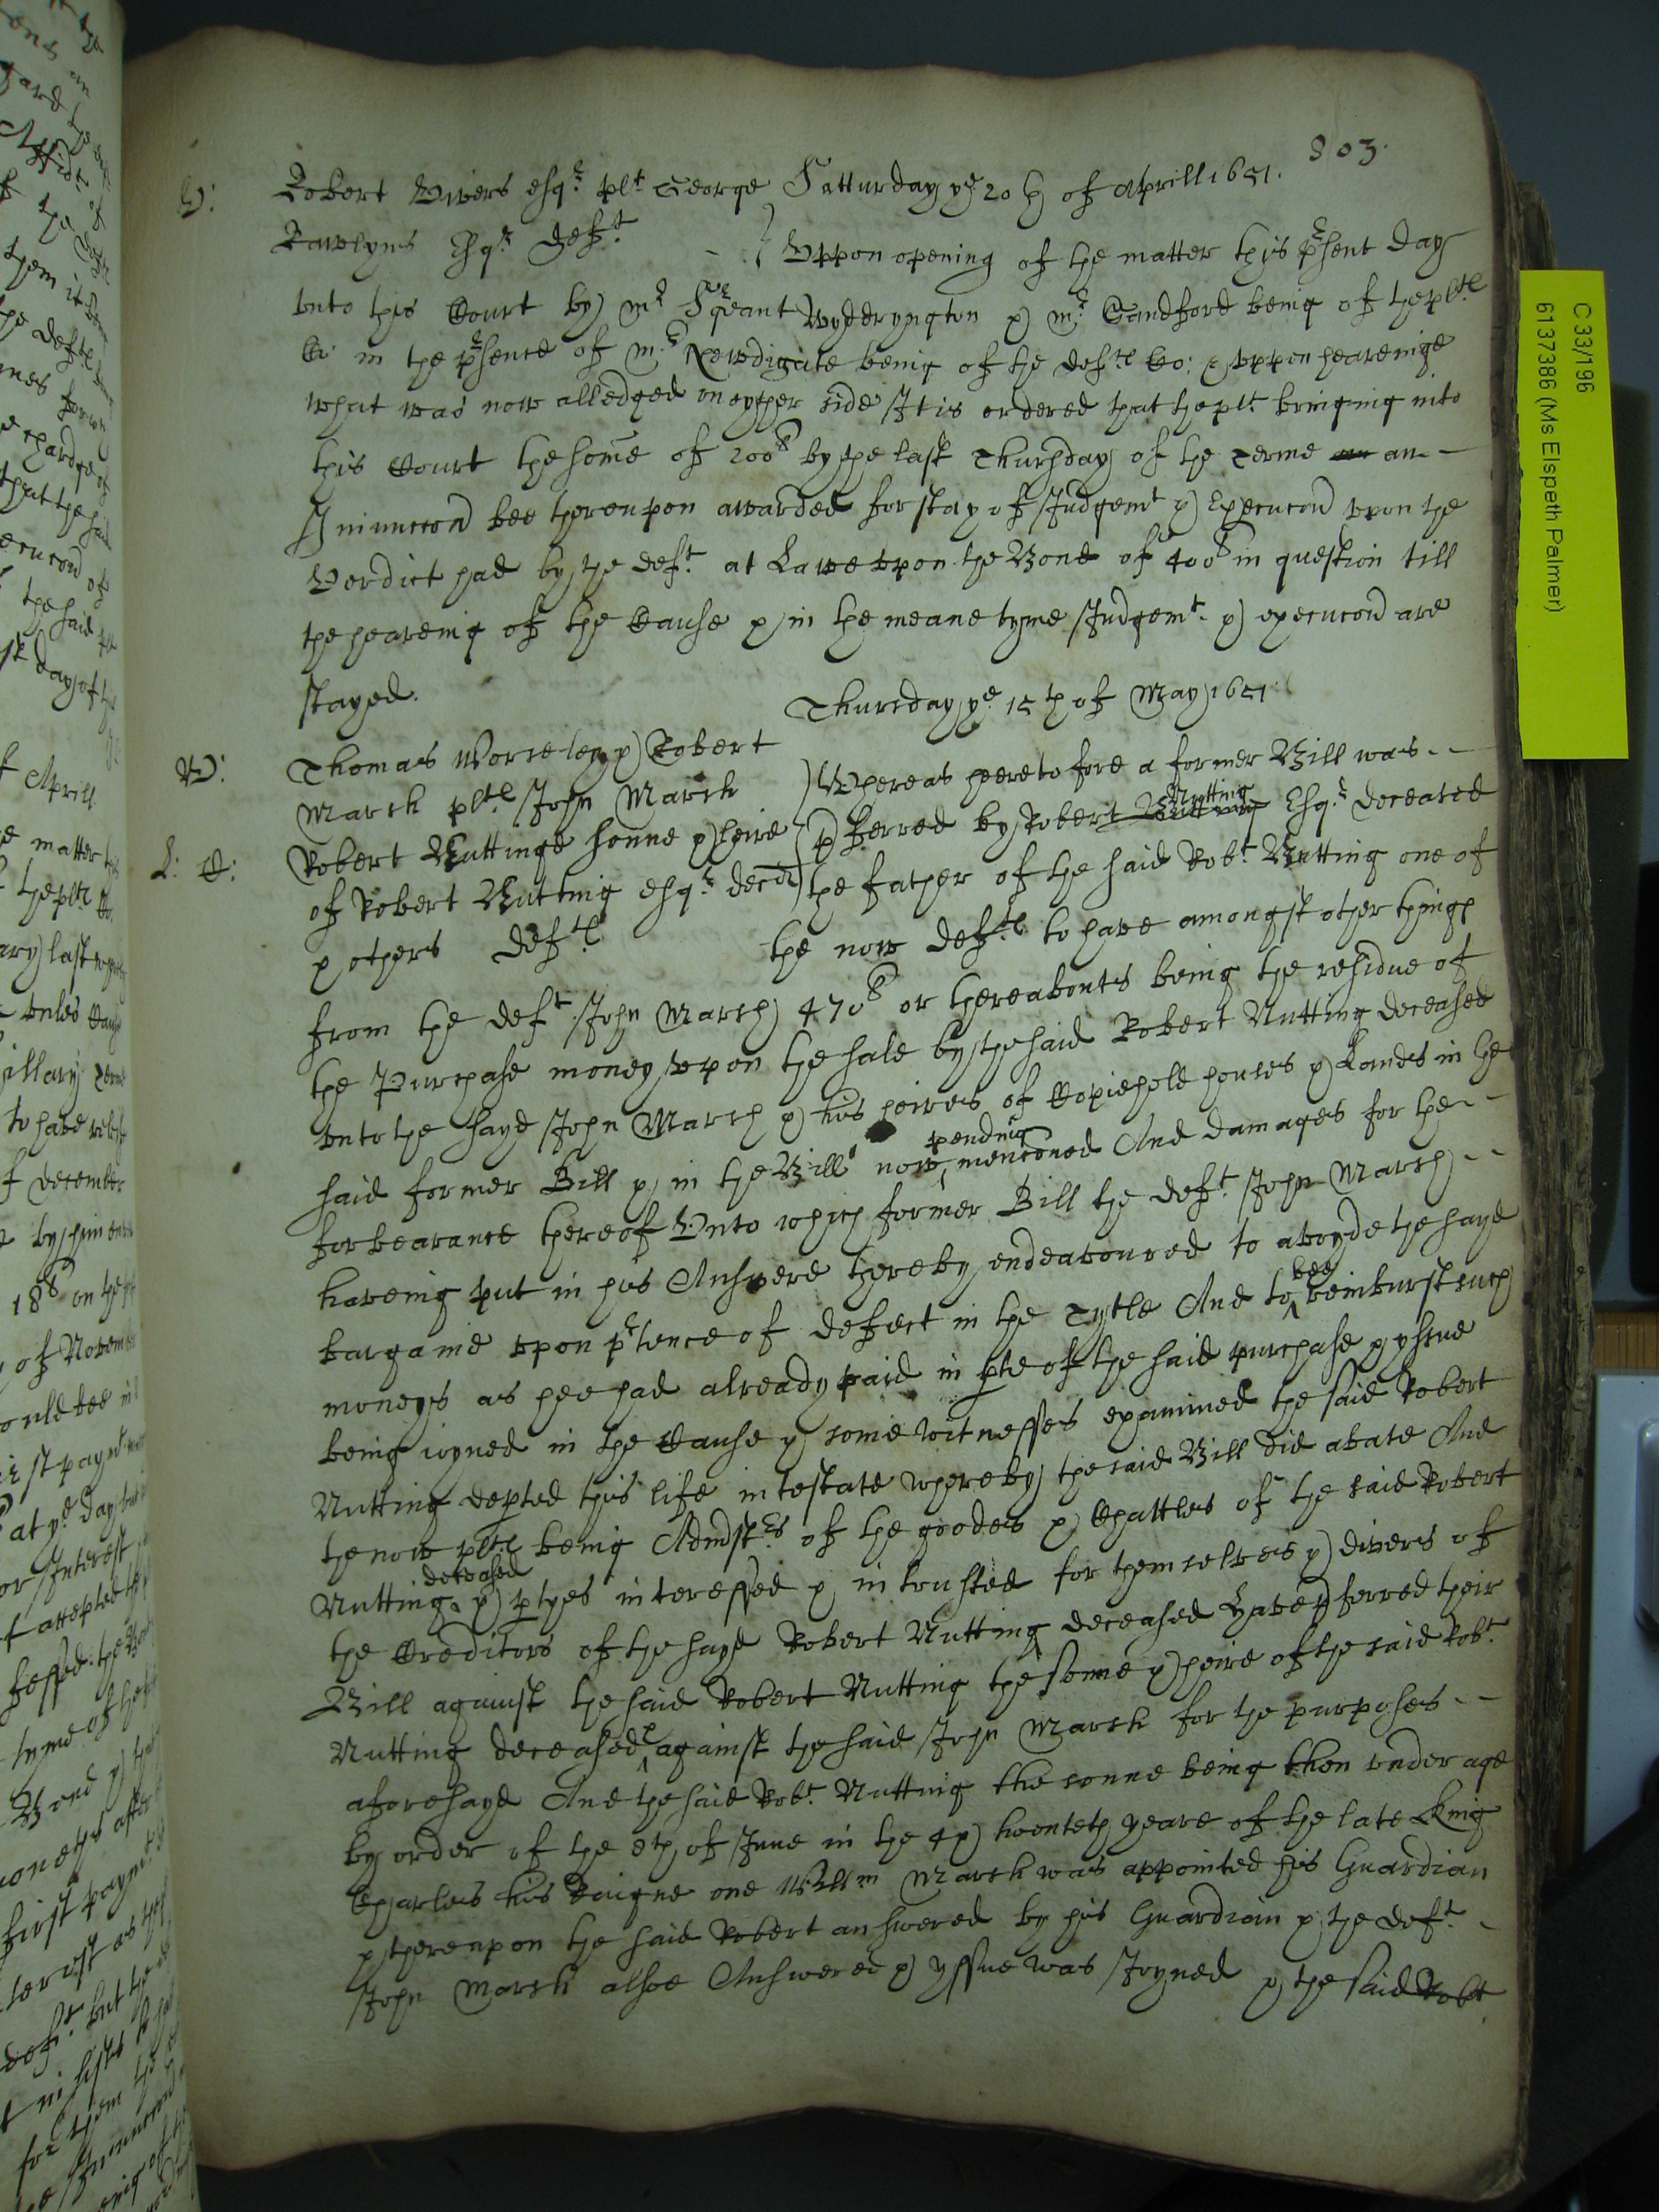 803.
V: Robert Vivers esqr. plt. George Satturday ye 20th of Aprill 1651.
Rawlyns Esqr. Deft. Vppon opening of the matter this pʳsent day
vnto this Court by mr. Serieant Wyddryngton & mr. Sandford being of the plts
Co: in the pʳsence of mr. Newdigate being of the defts Co: & vppon heareinge
what was now alledged on eyther side It is ordered that the plt. bringing into
this Court the some of 200l by the last Thursday of the Terme an an
Iniunccon bee therevpon awarded for stay of Iudgemt & Execucon vpon the
Verdict had by the deft. at Lawe vpon the Bond of 400l in question till
the heareing of the Cause & in the meane tyme Iudgemt. & execucon are
stayed.
Thursday ye 15th of May 1651
W: Thomas Worseley & Robert
March plts. John March Whereas heeretofore a former Bill was
L: C: Robert Nuttinge sonne & heire pferred by Robert Nutting Esqr. deceased
of Robert Nutting esqr. decd the father of the said Robt. Nutting one of
& others defts the now defts. to have amongst other things
from the deft John March 470l or thereabouts being the residue of
the Purchase money vpon the sale by the said Robert Nutting deceased
vnto the sayd John March & his heires of Copiehold houses & Landes in the
said former Bill & in the Bill now pending menconed And damages for the
forbearance thereof Vnto which former Bill the deft. John March
haveing put in his Answere thereby endeavoured to avoyde the sayd
bargaine vpon pʳtence of defect in the Tytle And to bee reimburst such
moneys as hee had already paid in pte of the said purchase & yssue
being ioyned in the Cause & some witnesses examined the said Robert
Nutting depted this life intestate whereby the said Bill did abate And
the now plts being Admstrs of the goodes & Chattles of the said Robert
Nutting deceased & ptyes interessed & intrusted for themselves & divers of
the Creditors of the sayd Robert Nutting deceased have pferred their
Bill against the said Robert Nutting the sonne & heire of the said Robt.
Nutting deceased & against the said John March for the purposes
aforesayd And the said Robt. Nutting the sonne being then vnder age
by order of the 8th of June in the 4 & twenteth yeare of the late King
Charles his Raigne one Willm March was appointed his Guardian
& therevpon the said Robert answered by his Guardian & the deft.
John March alsoe Answered & yssue was Joyned & the said Robt
C 33/196
6137386 (Ms Elspeth Palmer)